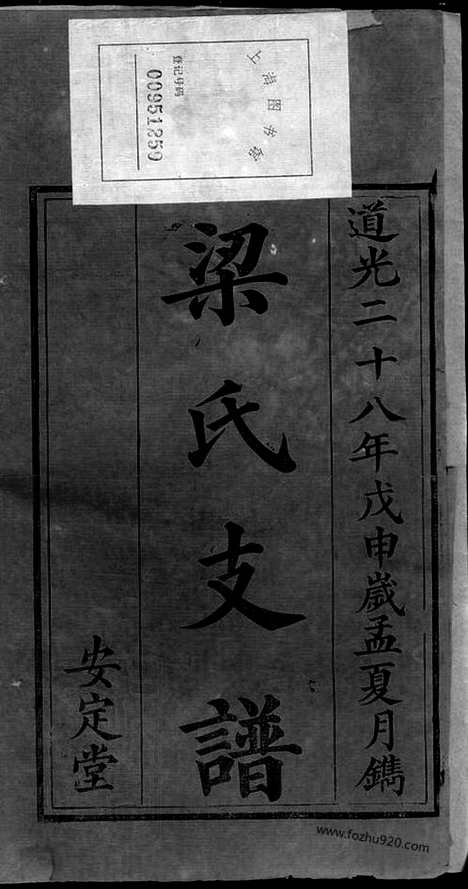 道光二十八年戊申歲孟夏月鐫
梁氏支譜
安定堂
上海图书馆
登记号码
00951850
www.fozhu920.com